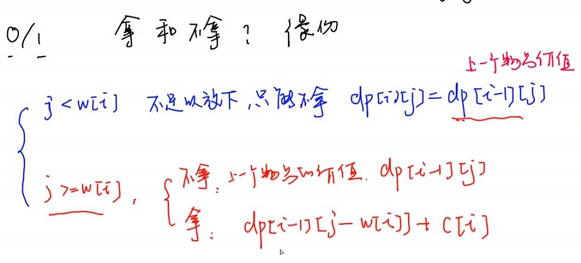 0/1 拿和不拿？ 价值
上一个物品价值
j<w[i] 不足以放下,只能不拿 dp[i][j]=dp[i-1][j]
j>=w[i],
不拿：上一个物品的价值. dp[i-1][j]
拿： dp[i-1][j-w[i]]+c[i]